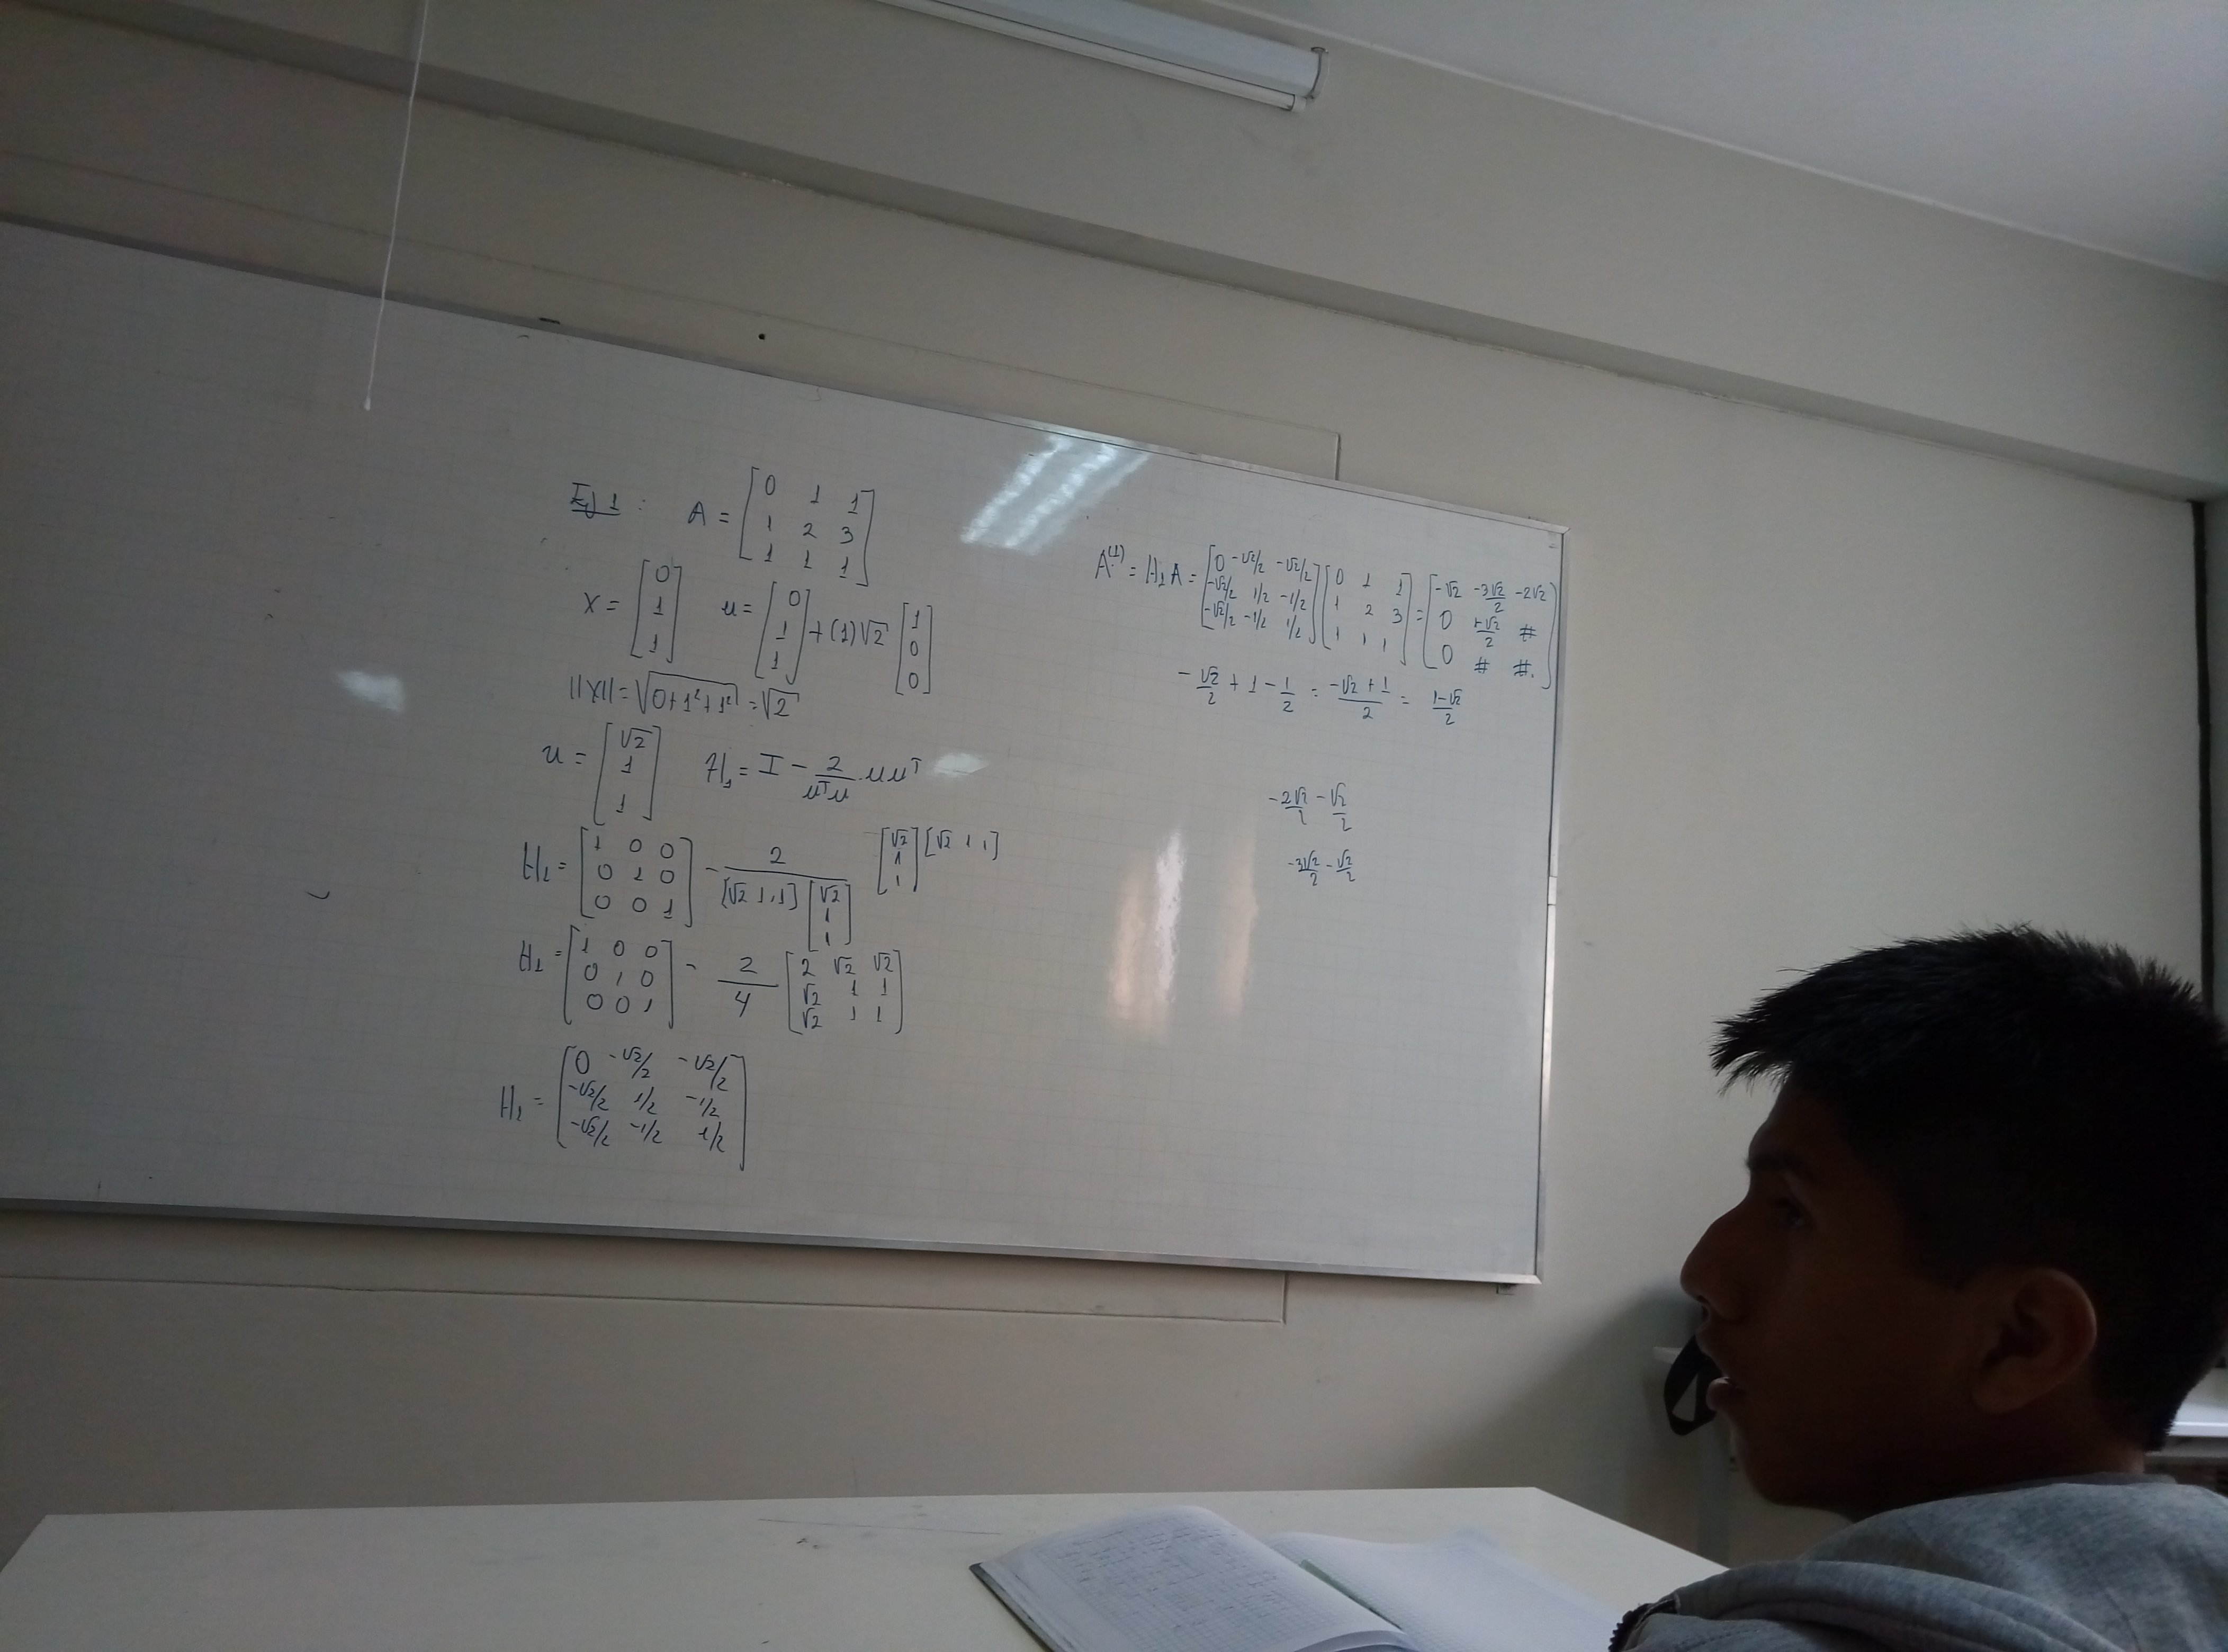 Ej 1 : A = [0 1 1; 1 2 3; 1 1 1]
X = [0; 1; 1] u = [0; 1; 1] + (1)√2 [1; 0; 0]
||X|| = √(0+1²+1²) = √2
u = [√2; 1; 1] H₁ = I - 2/(uᵀu) · uuᵀ
H₁ = [1 0 0; 0 1 0; 0 0 1] - 2/([√2 1 1][√2; 1; 1]) [√2; 1; 1][√2 1 1]
H₁ = [1 0 0; 0 1 0; 0 0 1] - 2/4 [2 √2 √2; √2 1 1; √2 1 1]
H₁ = [0 -√2/2 -√2/2; -√2/2 1/2 -1/2; -√2/2 -1/2 1/2]
A⁽¹⁾ = H₁A = [0 -√2/2 -√2/2; -√2/2 1/2 -1/2; -√2/2 -1/2 1/2][0 1 1; 1 2 3; 1 1 1] = [-√2 -3√2/2 -2√2; 0 #; 0 # #.]
-√2/2 + 1 - 1/2 = (-√2 + 1)/2 = (1-√2)/2
-2√2/2 - √2/2
-3√2/2 - √2/2